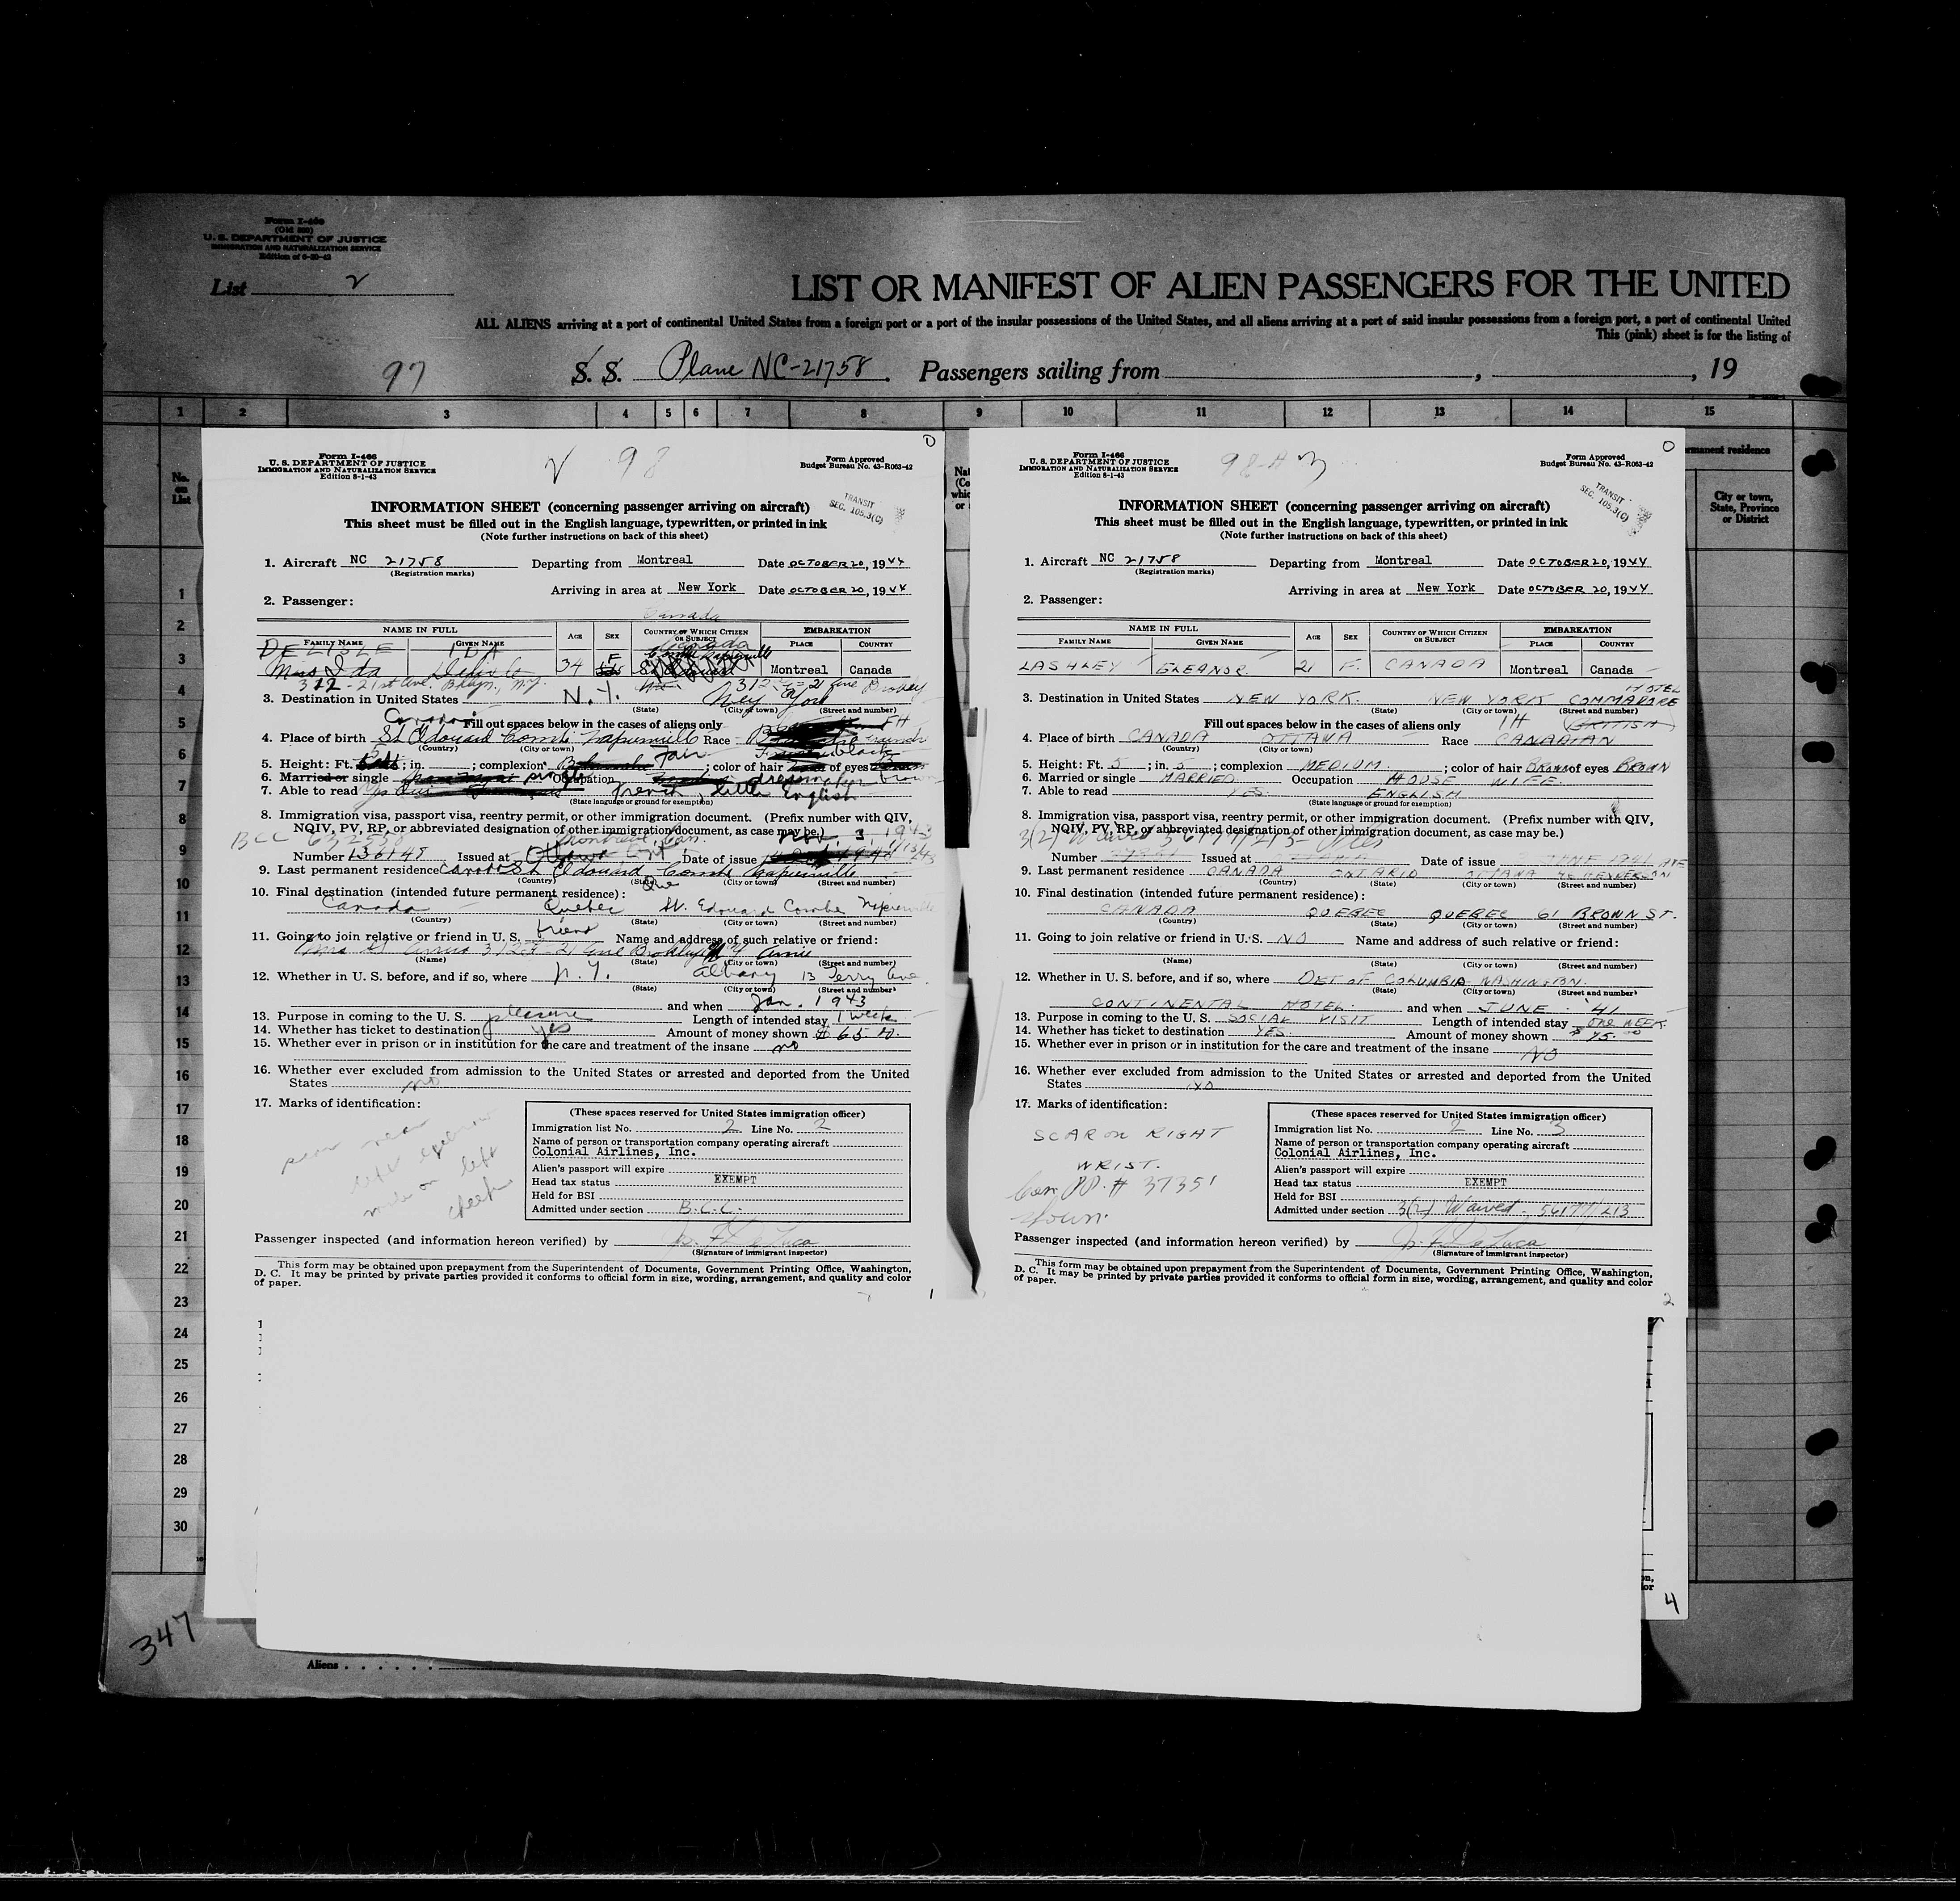 Form I-466
(Old 500)
U. S. DEPARTMENT OF JUSTICE
IMMIGRATION AND NATURALIZATION SERVICE
List 2
LIST OR MANIFEST OF ALIEN PASSENGERS FOR THE UNITED
ALL ALIENS arriving at a port of continental United States from a foreign port or a port of the insular possessions of the United States, and all aliens arriving at a port of said insular possessions from a foreign port, a port of continental United
This (pink) sheet is for the listing of
97 S. S. Plane NC-21758. Passengers sailing from , , 19
1 2 3 4 5 6 7 8 9 10 11 12 13 14 15
No. on List
rmanent residence
City or town, State, Province or District
1
2
3
4
5
6
7
8
9
10
11
12
13
14
15
16
17
18
19
20
21
22
23
24
25
26
27
28
29
30
Form I-466
U. S. DEPARTMENT OF JUSTICE
IMMIGRATION AND NATURALIZATION SERVICE
Edition 8-1-43
98
Form Approved
Budget Bureau No. 43-R063-42
TRANSIT
SEC. 105.3(C)
INFORMATION SHEET (concerning passenger arriving on aircraft)
This sheet must be filled out in the English language, typewritten, or printed in ink
(Note further instructions on back of this sheet)
1. Aircraft NC 21758 Departing from Montreal Date OCTOBER 20, 1944
(Registration marks)
Arriving in area at New York Date OCTOBER 20, 1944
2. Passenger:
Canada
NAME IN FULL AGE SEX COUNTRY OF WHICH CITIZEN OR SUBJECT EMBARKATION
FAMILY NAME GIVEN NAME PLACE COUNTRY
DELISLE IDA
Miss Ida Delisle 34 F Montreal Canada
312 - 21st Ave. Bklyn, N.Y.
3. Destination in United States N. Y. New York
(State) (City or town) (Street and number)
Canada Fill out spaces below in the cases of aliens only
4. Place of birth St Edouard Comté Napierville Race
(Country) (City or town)
5. Height: Ft. 5; in. ; complexion Fair; color of hair black of eyes brown
6. Married or single single Occupation
7. Able to read yes French, little English
(State language or ground for exemption)
8. Immigration visa, passport visa, reentry permit, or other immigration document. (Prefix number with QIV,
NQIV, PV, RP, or abbreviated designation of other immigration document, as case may be.)
BCC Montreal, Can. Nov. 3 1943
Number 136149 Issued at Date of issue
9. Last permanent residence Canada St Edouard Comté Napierville
(Country) (State) (City or town) (Street and number)
10. Final destination (intended future permanent residence):
Canada Quebec St. Edouard Combe
(Country) (State) (City or town) (Street and number)
11. Going to join relative or friend in U. S. friend Name and address of such relative or friend:
(Name) (State) (City or town) (Street and number)
12. Whether in U. S. before, and if so, where N. Y. Albany 13 Terry Ave
(State) (City or town) (Street and number)
and when Jan. 1943
13. Purpose in coming to the U. S. pleasure Length of intended stay 1 week
14. Whether has ticket to destination yes Amount of money shown $65
15. Whether ever in prison or in institution for the care and treatment of the insane no
16. Whether ever excluded from admission to the United States or arrested and deported from the United
States no
17. Marks of identification:
left eyebrow
mole on left
cheek
(These spaces reserved for United States immigration officer)
Immigration list No. 2 Line No. 2
Name of person or transportation company operating aircraft
Colonial Airlines, Inc.
Alien's passport will expire
Head tax status EXEMPT
Held for BSI
Admitted under section B.C.C.
Passenger inspected (and information hereon verified) by
(Signature of immigrant inspector)
This form may be obtained upon prepayment from the Superintendent of Documents, Government Printing Office, Washington,
D. C. It may be printed by private parties provided it conforms to official form in size, wording, arrangement, and quality and color
of paper.
1
Form I-466
U. S. DEPARTMENT OF JUSTICE
IMMIGRATION AND NATURALIZATION SERVICE
Edition 8-1-43
98-A 3
Form Approved
Budget Bureau No. 43-R063-42
TRANSIT
SEC. 105.3(C)
INFORMATION SHEET (concerning passenger arriving on aircraft)
This sheet must be filled out in the English language, typewritten, or printed in ink
(Note further instructions on back of this sheet)
1. Aircraft NC 21758 Departing from Montreal Date OCTOBER 20, 1944
(Registration marks)
Arriving in area at New York Date OCTOBER 20, 1944
2. Passenger:
NAME IN FULL AGE SEX COUNTRY OF WHICH CITIZEN OR SUBJECT EMBARKATION
FAMILY NAME GIVEN NAME PLACE COUNTRY
LASHLEY ELEANOR 21 F. CANADA Montreal Canada
3. Destination in United States NEW YORK. NEW YORK HOTEL COMMADORE
(State) (City or town) (Street and number)
Fill out spaces below in the cases of aliens only
4. Place of birth CANADA OTTAWA Race BRITISH CANADIAN
(Country) (City or town)
5. Height: Ft. 5; in. 5; complexion MEDIUM.; color of hair BROWN of eyes BROWN
6. Married or single MARRIED. Occupation HOUSE WIFE.
7. Able to read YES. ENGLISH
(State language or ground for exemption)
8. Immigration visa, passport visa, reentry permit, or other immigration document. (Prefix number with QIV,
NQIV, PV, RP, or abbreviated designation of other immigration document, as case may be.)
3(2) Waived 56177/213
Number Issued at Date of issue JUNE 1941
9. Last permanent residence CANADA ONTARIO OTTAWA HENDERSON AVE
(Country) (State) (City or town) (Street and number)
10. Final destination (intended future permanent residence):
CANADA QUEBEC QUEBEC 61 BROWN ST.
(Country) (State) (City or town) (Street and number)
11. Going to join relative or friend in U. S. NO Name and address of such relative or friend:
(Name) (State) (City or town) (Street and number)
12. Whether in U. S. before, and if so, where DET OF COLUMBIA WASHINGTON.
(State) (City or town) (Street and number)
CONTINENTAL HOTEL. and when JUNE '41
13. Purpose in coming to the U. S. SOCIAL VISIT Length of intended stay ONE WEEK.
14. Whether has ticket to destination YES. Amount of money shown $75.00
15. Whether ever in prison or in institution for the care and treatment of the insane NO
16. Whether ever excluded from admission to the United States or arrested and deported from the United
States NO
17. Marks of identification:
SCAR ON RIGHT
WRIST.
Can PP. # 37351
shown.
(These spaces reserved for United States immigration officer)
Immigration list No. 2 Line No. 3
Name of person or transportation company operating aircraft
Colonial Airlines, Inc.
Alien's passport will expire
Head tax status EXEMPT
Held for BSI
Admitted under section 3(2) Waived - 56177/213
Passenger inspected (and information hereon verified) by
(Signature of immigrant inspector)
This form may be obtained upon prepayment from the Superintendent of Documents, Government Printing Office, Washington,
D. C. It may be printed by private parties provided it conforms to official form in size, wording, arrangement, and quality and color
of paper.
2
4
347
Aliens